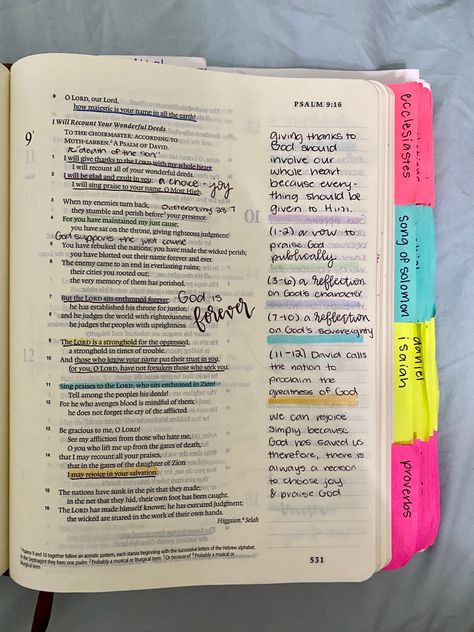 PSALM 9:16
9 O LORD, our Lord,
how majestic is your name in all the earth!
I Will Recount Your Wonderful Deeds
9
TO THE CHOIRMASTER: ACCORDING TO
MUTH-LABBEN. A PSALM OF DAVID.
"death of the son"
1 I will give thanks to the LORD with my whole heart;
I will recount all of your wonderful deeds.
2 I will be glad and exult in you; a choice - joy
I will sing praise to your name, O Most High.
3 When my enemies turn back,
they stumble and perish before your presence.
4 For you have maintained my just cause;
you have sat on the throne, giving righteous judgment.
God supports the just cause
5 You have rebuked the nations; you have made the wicked perish;
you have blotted out their name forever and ever.
6 The enemy came to an end in everlasting ruins;
their cities you rooted out;
the very memory of them has perished.
7 But the LORD sits enthroned forever; God is
he has established his throne for justice, forever
8 and he judges the world with righteousness;
he judges the peoples with uprightness.
9 The LORD is a stronghold for the oppressed,
a stronghold in times of trouble.
10 And those who know your name put their trust in you,
for you, O LORD, have not forsaken those who seek you.
11 Sing praises to the LORD, who sits enthroned in Zion!
Tell among the peoples his deeds!
12 For he who avenges blood is mindful of them;
he does not forget the cry of the afflicted.
13 Be gracious to me, O LORD!
See my affliction from those who hate me,
O you who lift me up from the gates of death,
14 that I may recount all your praises,
that in the gates of the daughter of Zion
I may rejoice in your salvation.
15 The nations have sunk in the pit that they made;
in the net that they hid, their own foot has been caught.
16 The LORD has made himself known; he has executed judgment;
the wicked are snared in the work of their own hands.
Higgaion. Selah
giving thanks to
God should
involve our
whole heart
because every-
thing should be
given to Him.
(1-2) a vow to
praise God
publically
(3-6) a reflection
on God's character
(7-10) a reflection
on God's sovereignty
(11-12) David calls
the nation to
proclaim the
greatness of God
we can rejoice
simply because
God has saved us
therefore, there is
always a reason
to choose joy
& praise God
531
ecclesiastes
song of solomon
daniel
isaiah
proverbs